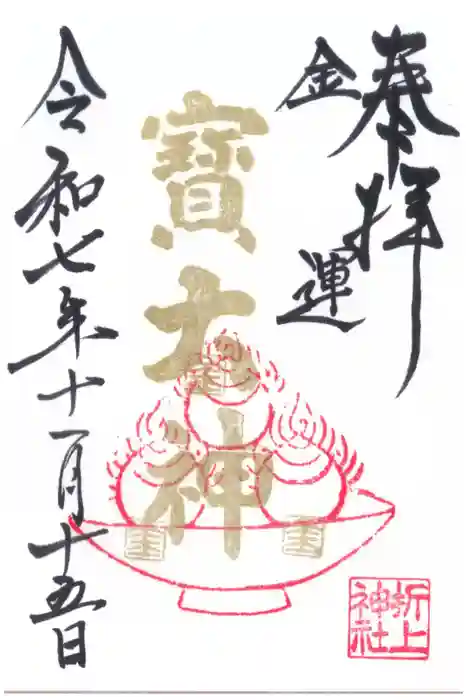 奉拝
金運
寳大神
令和七年十一月十五日
折上
神社